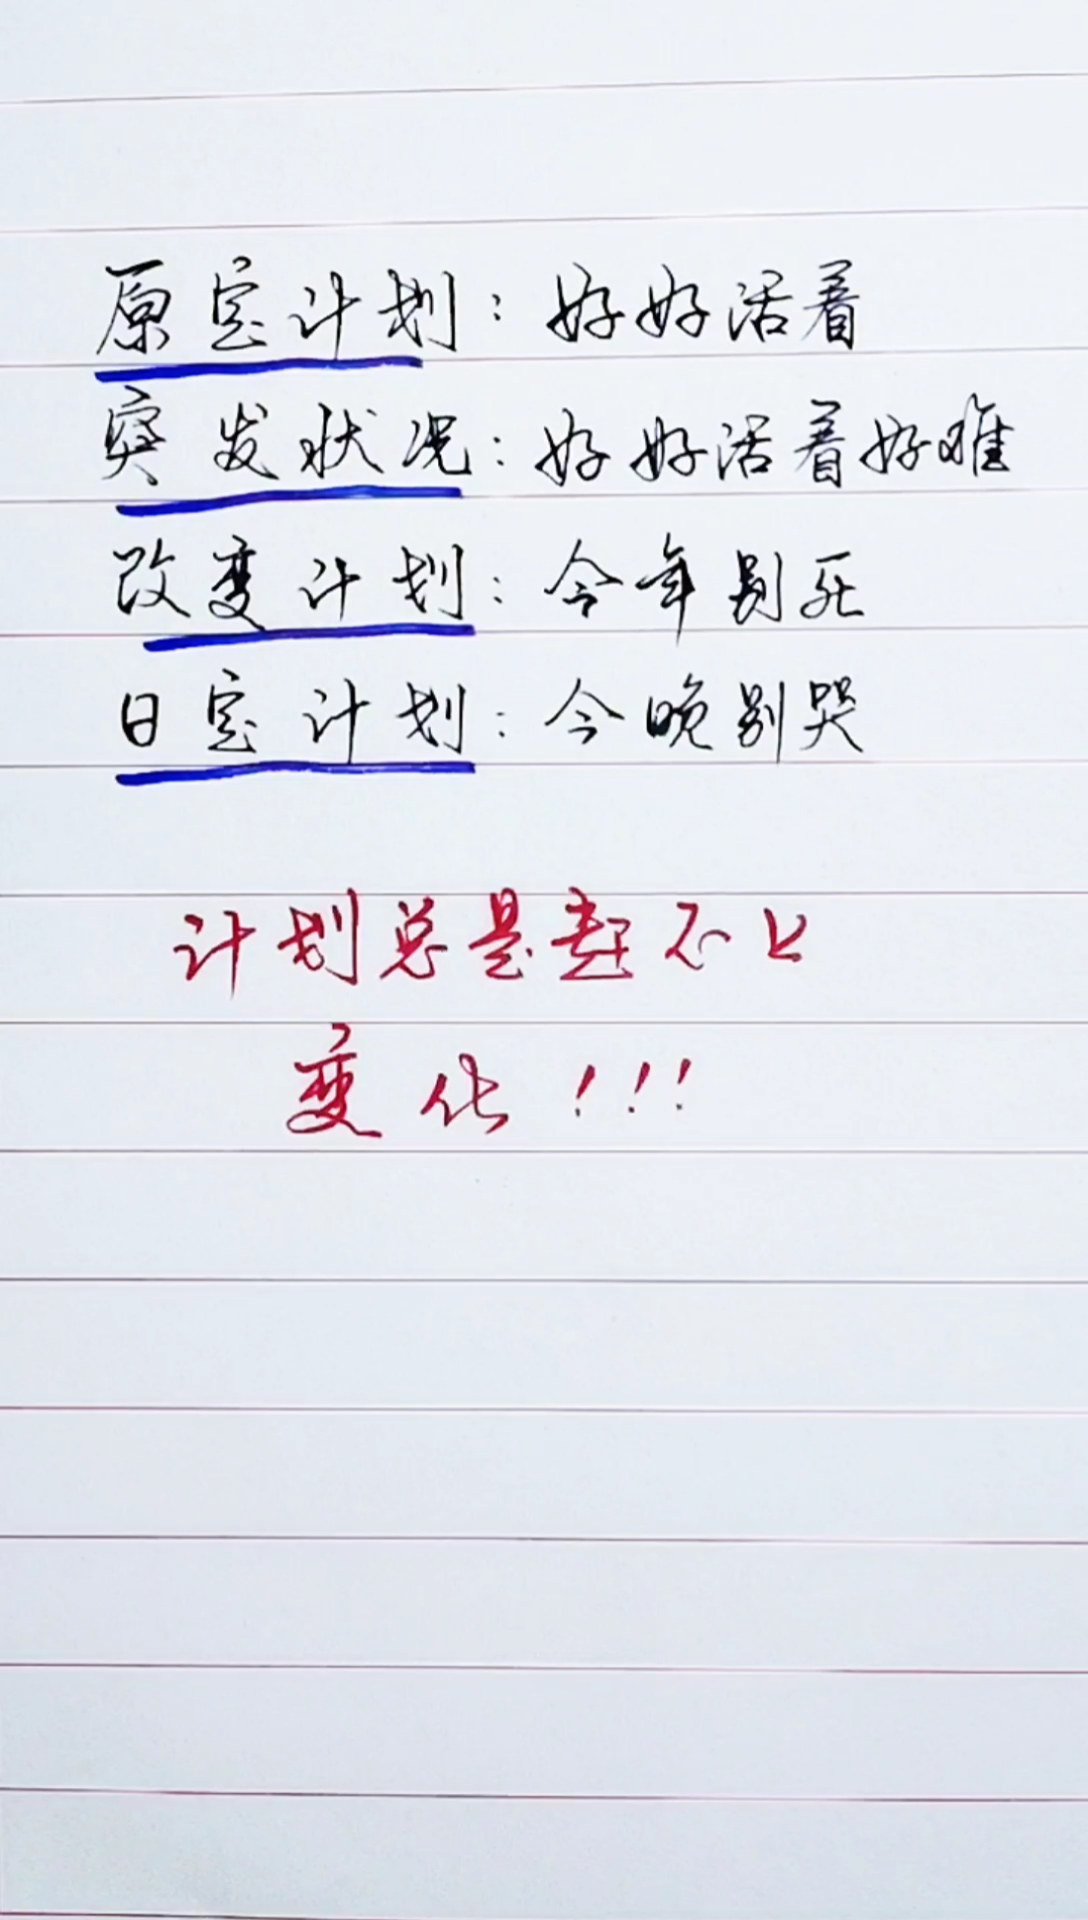 原定计划：好好活着
突发状况：好好活着好难
改变计划：今年别死
日定计划：今晚别哭
计划总是赶不上
变化！！！